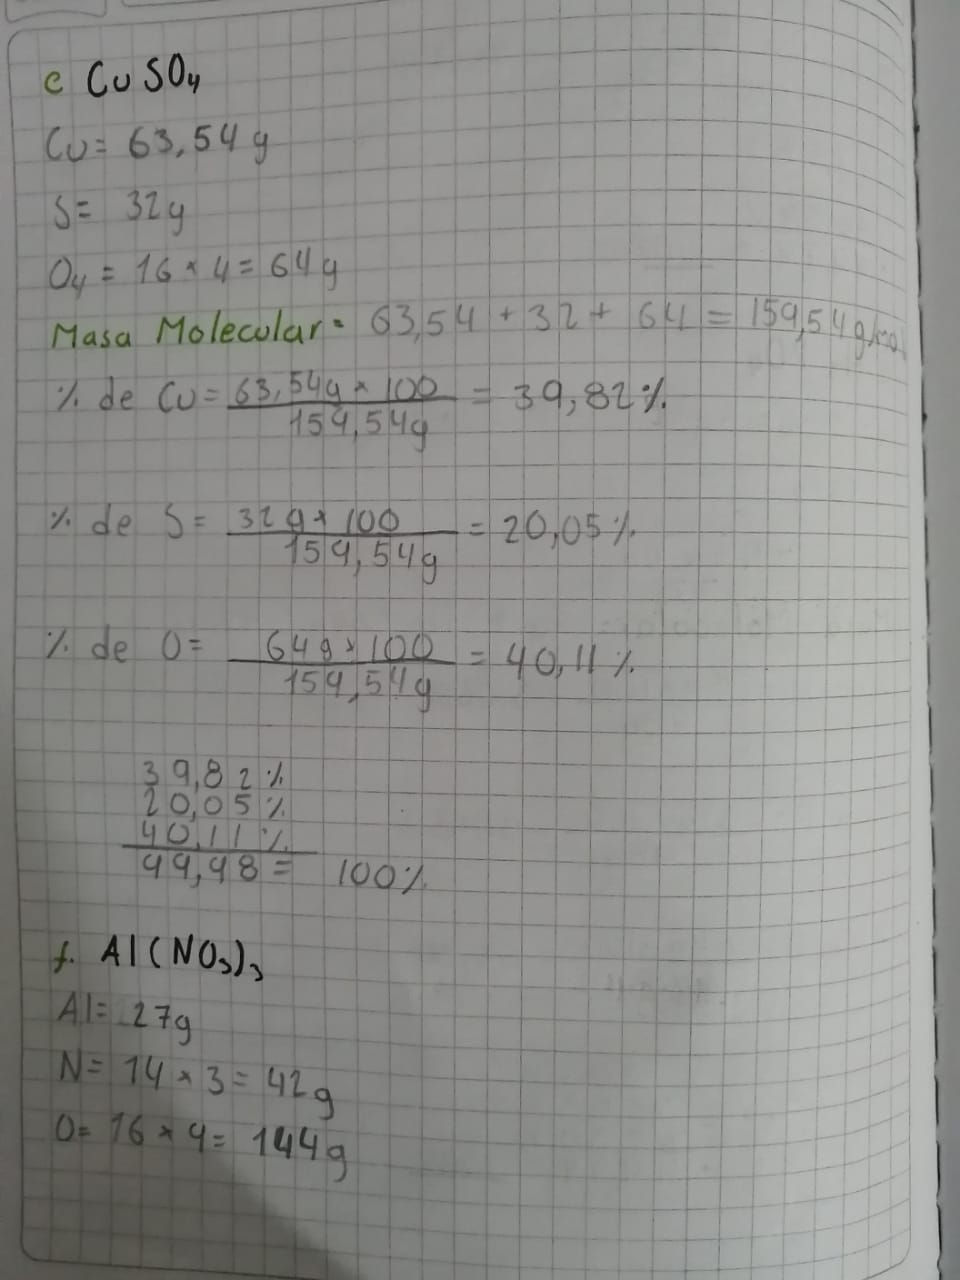 e CuSO4
Cu= 63,54 g
S= 32g
O4 = 16 × 4 = 64g
Masa Molecular = 63,54 + 32 + 64 = 159,54 g/mol
% de Cu = 63,54g × 100 = 39,82%
159,54g
% de S = 32g × 100 = 20,05%
159,54g
% de O = 64g × 100 = 40,11%
159,54g
39,82%
20,05%
40,11%
99,98 = 100%
f. Al(NO3)3
Al= 27g
N= 14 × 3 = 42g
O= 16 × 9 = 144g